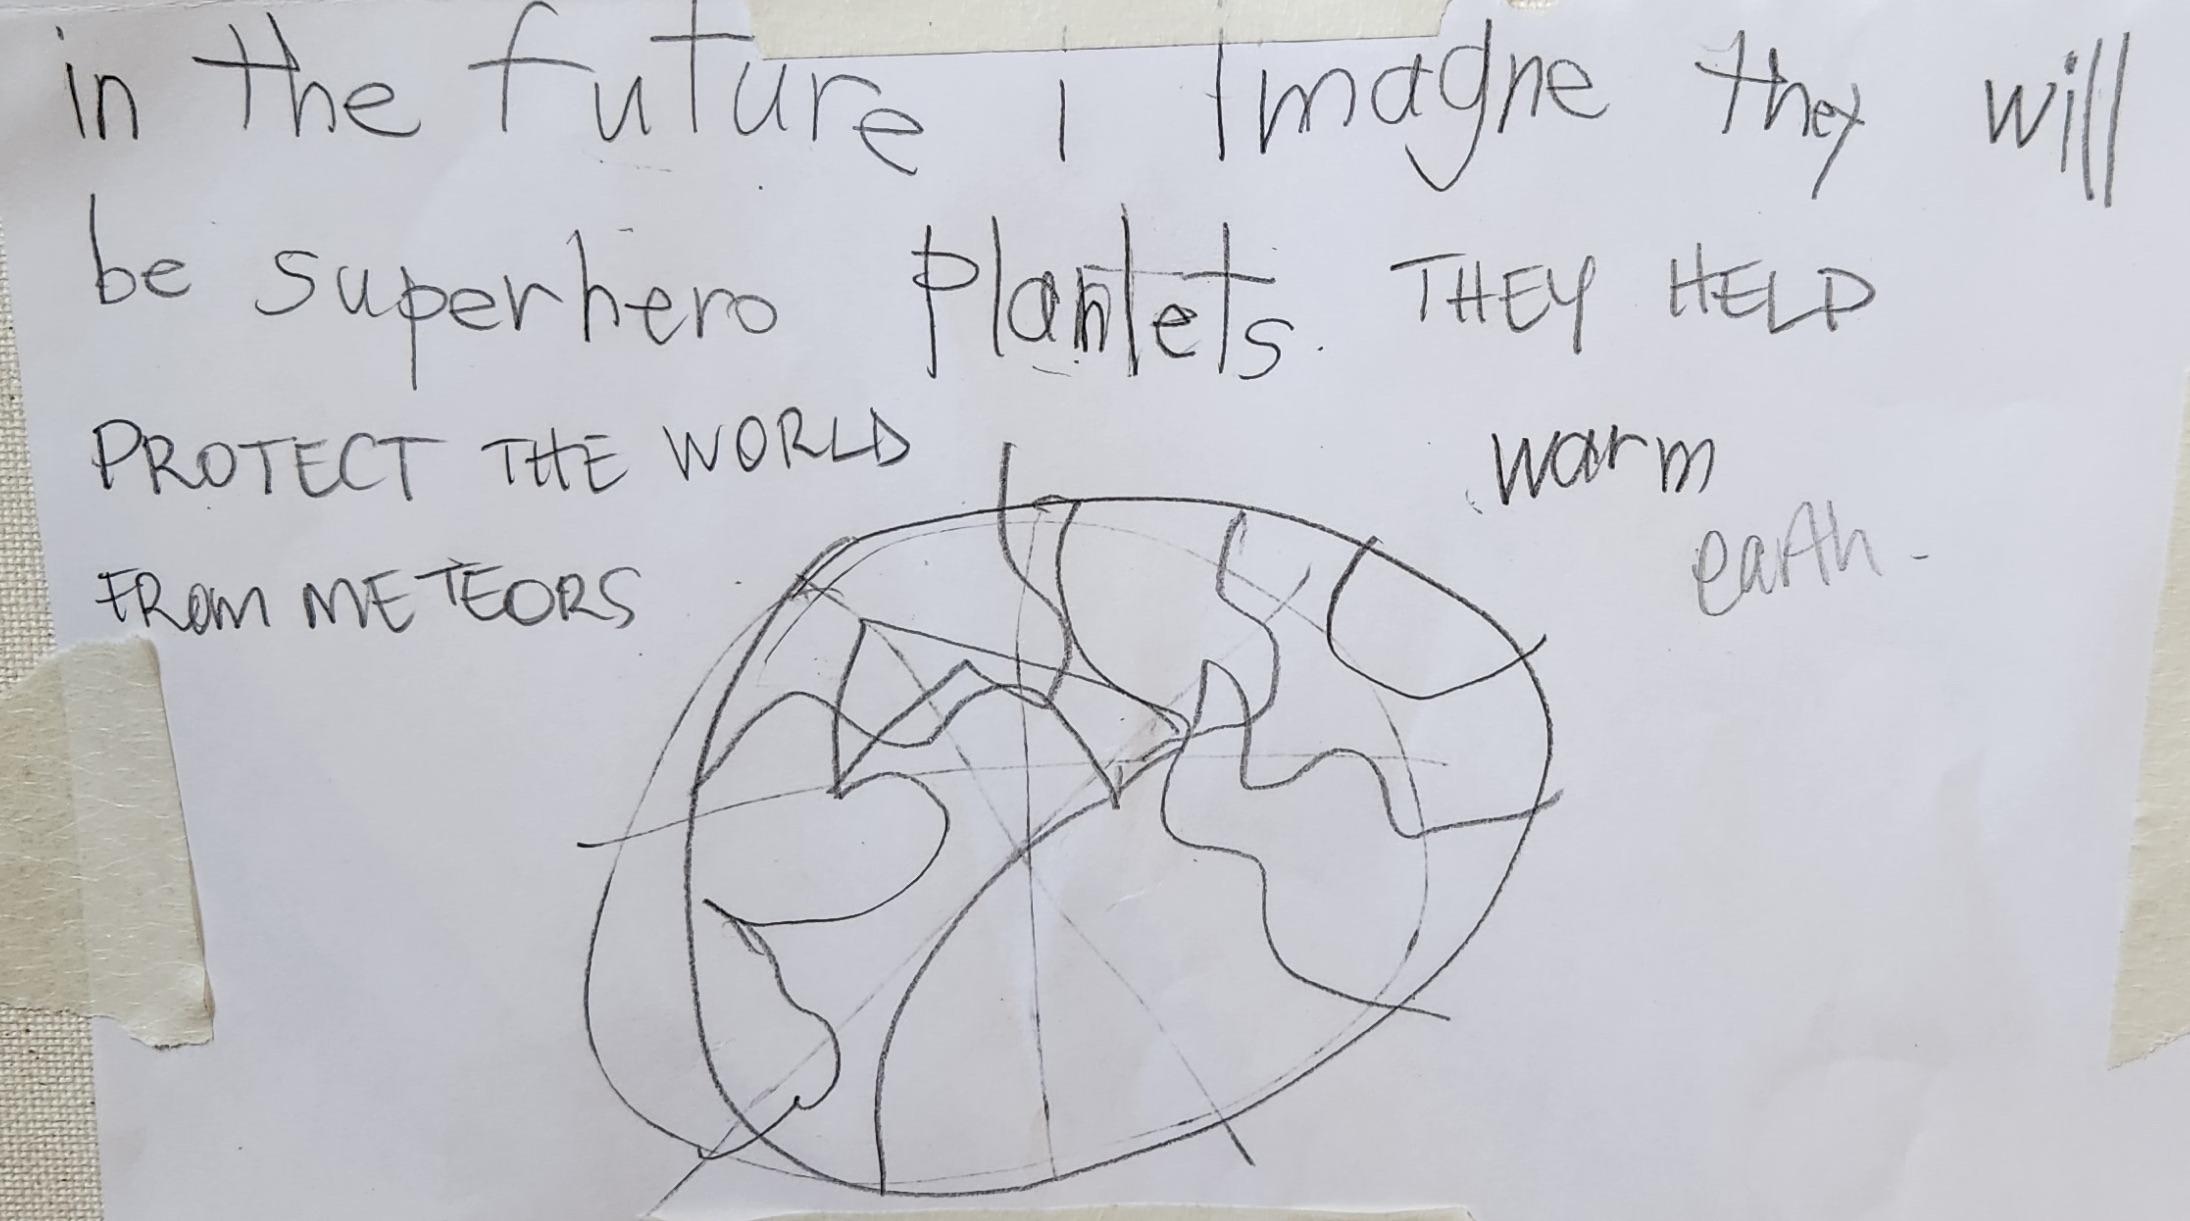 in the future i Imagne they will
be superhero Planlets. THEY HELD
PROTECT THE WORLD
FROM METEORS
warm
earth-